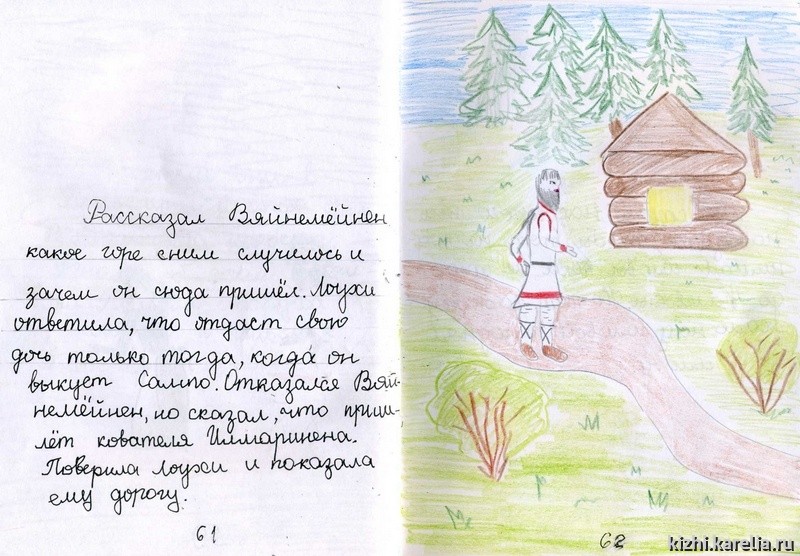 Рассказал Вяйнемёйнен
какое горе сним случилось и
зачем он сюда пришёл. Лоухи
ответила, что отдаст свою
дочь только тогда, когда он
выкует Сампо. Отказался Вяй-
немёйнен, но сказал, что приш-
лёт кователя Илмаринена.
Поверила Лоухи и показала
ему дорогу.
61
62
kizhi.karelia.ru